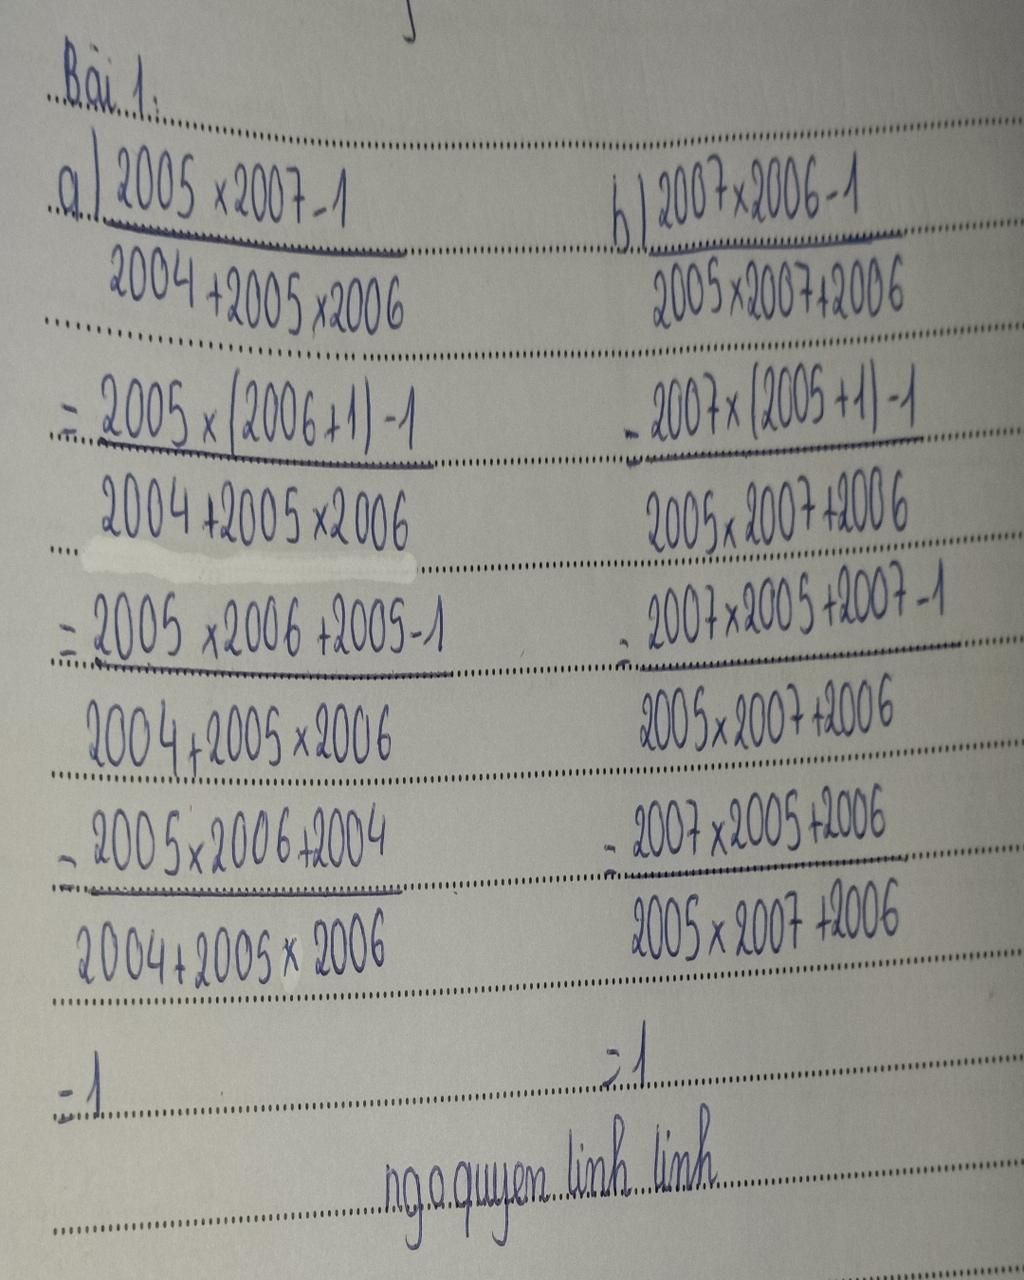 Bài 1:
a) 2005 x 2007 - 1
2004 + 2005 x 2006
= 2005 x (2006 + 1) - 1
2004 + 2005 x 2006
= 2005 x 2006 + 2005 - 1
2004 + 2005 x 2006
= 2005 x 2006 + 2004
2004 + 2005 x 2006
= 1
b) 2007 x 2006 - 1
2005 x 2007 + 2006
= 2007 x (2005 + 1) - 1
2005 x 2007 + 2006
= 2007 x 2005 + 2007 - 1
2005 x 2007 + 2006
= 2007 x 2005 + 2006
2005 x 2007 + 2006
= 1
ngoquyen linh linh